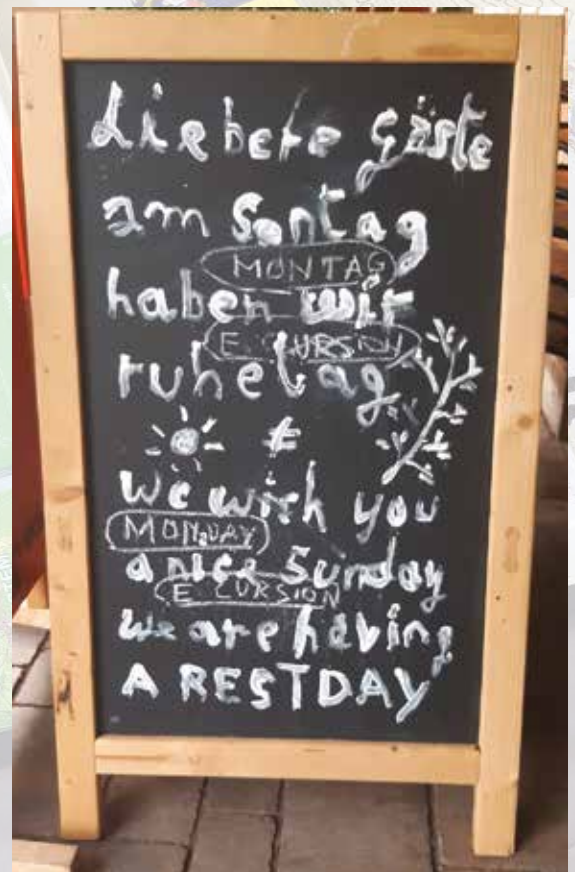 Liebere Gäste
am Sontag
MONTAG
haben wir
E CURSION
ruhetag
we wish you
MONDAY
a nice Sunday
E CURSION
we are having
A RESTDAY